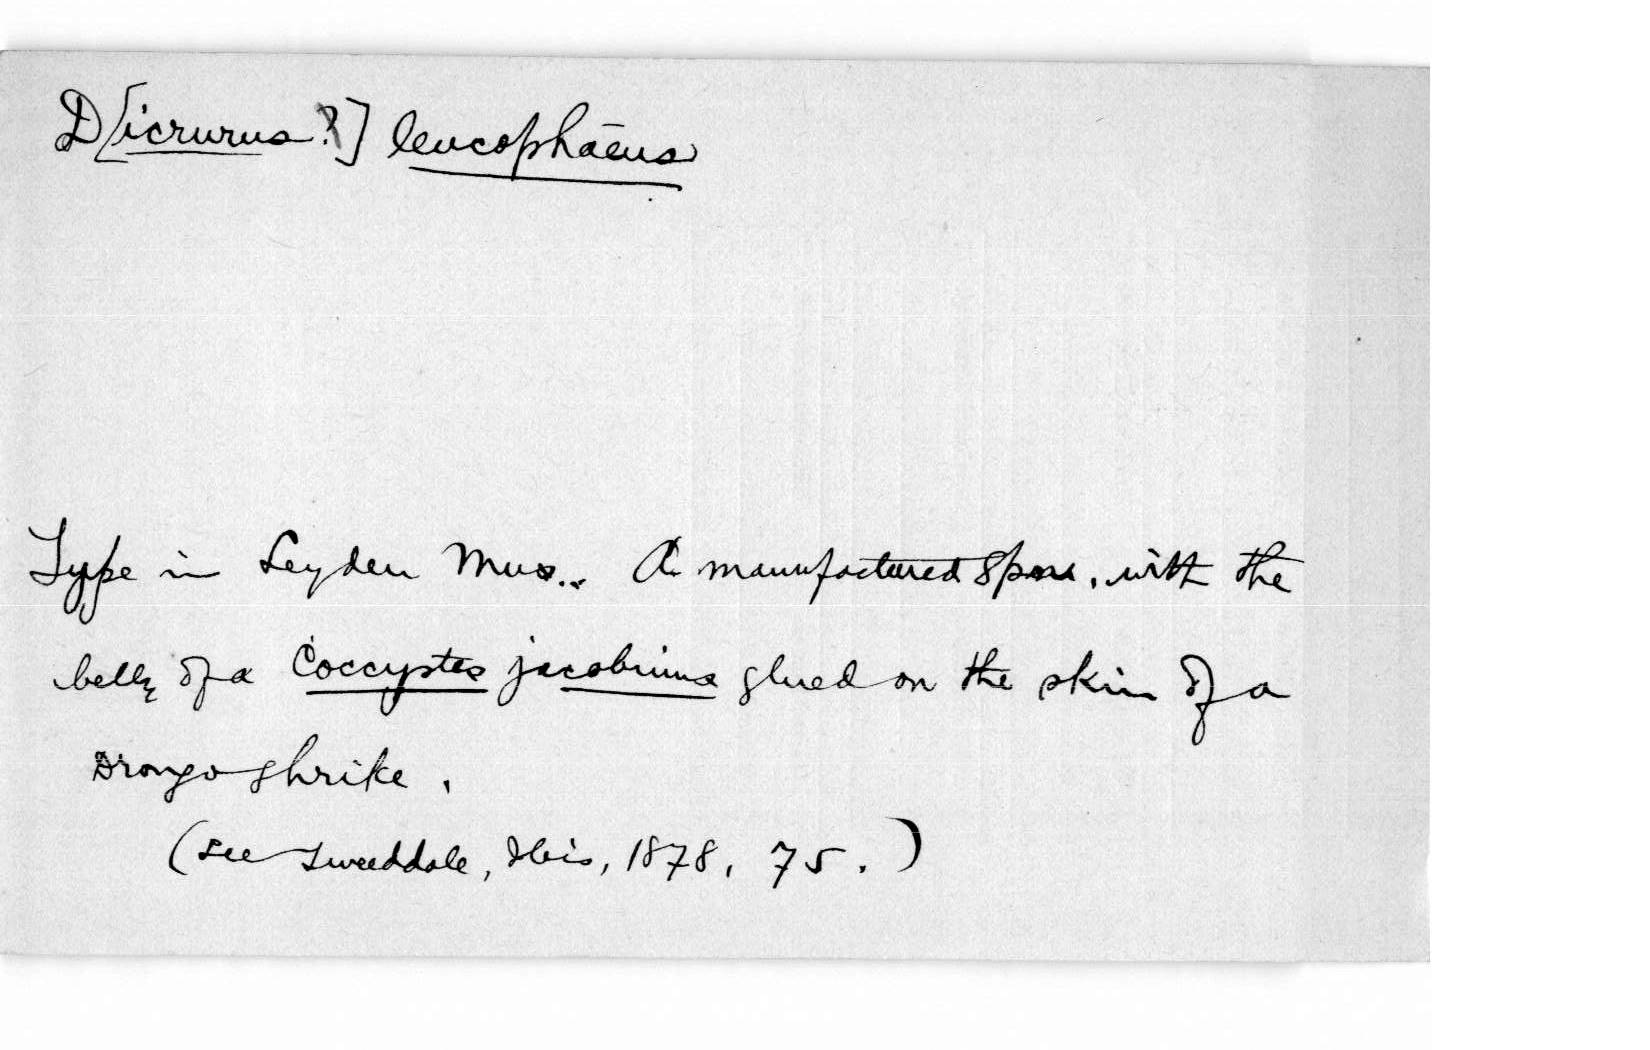 D[icrurus?] leucophāeus
Type in Leyden Mus.. A manufactured Spm., with the
belly of a Coccystes jacobinus glued on the skin of a
Drongo shrike.
(see Tweeddale, Ibis, 1878, 75.)